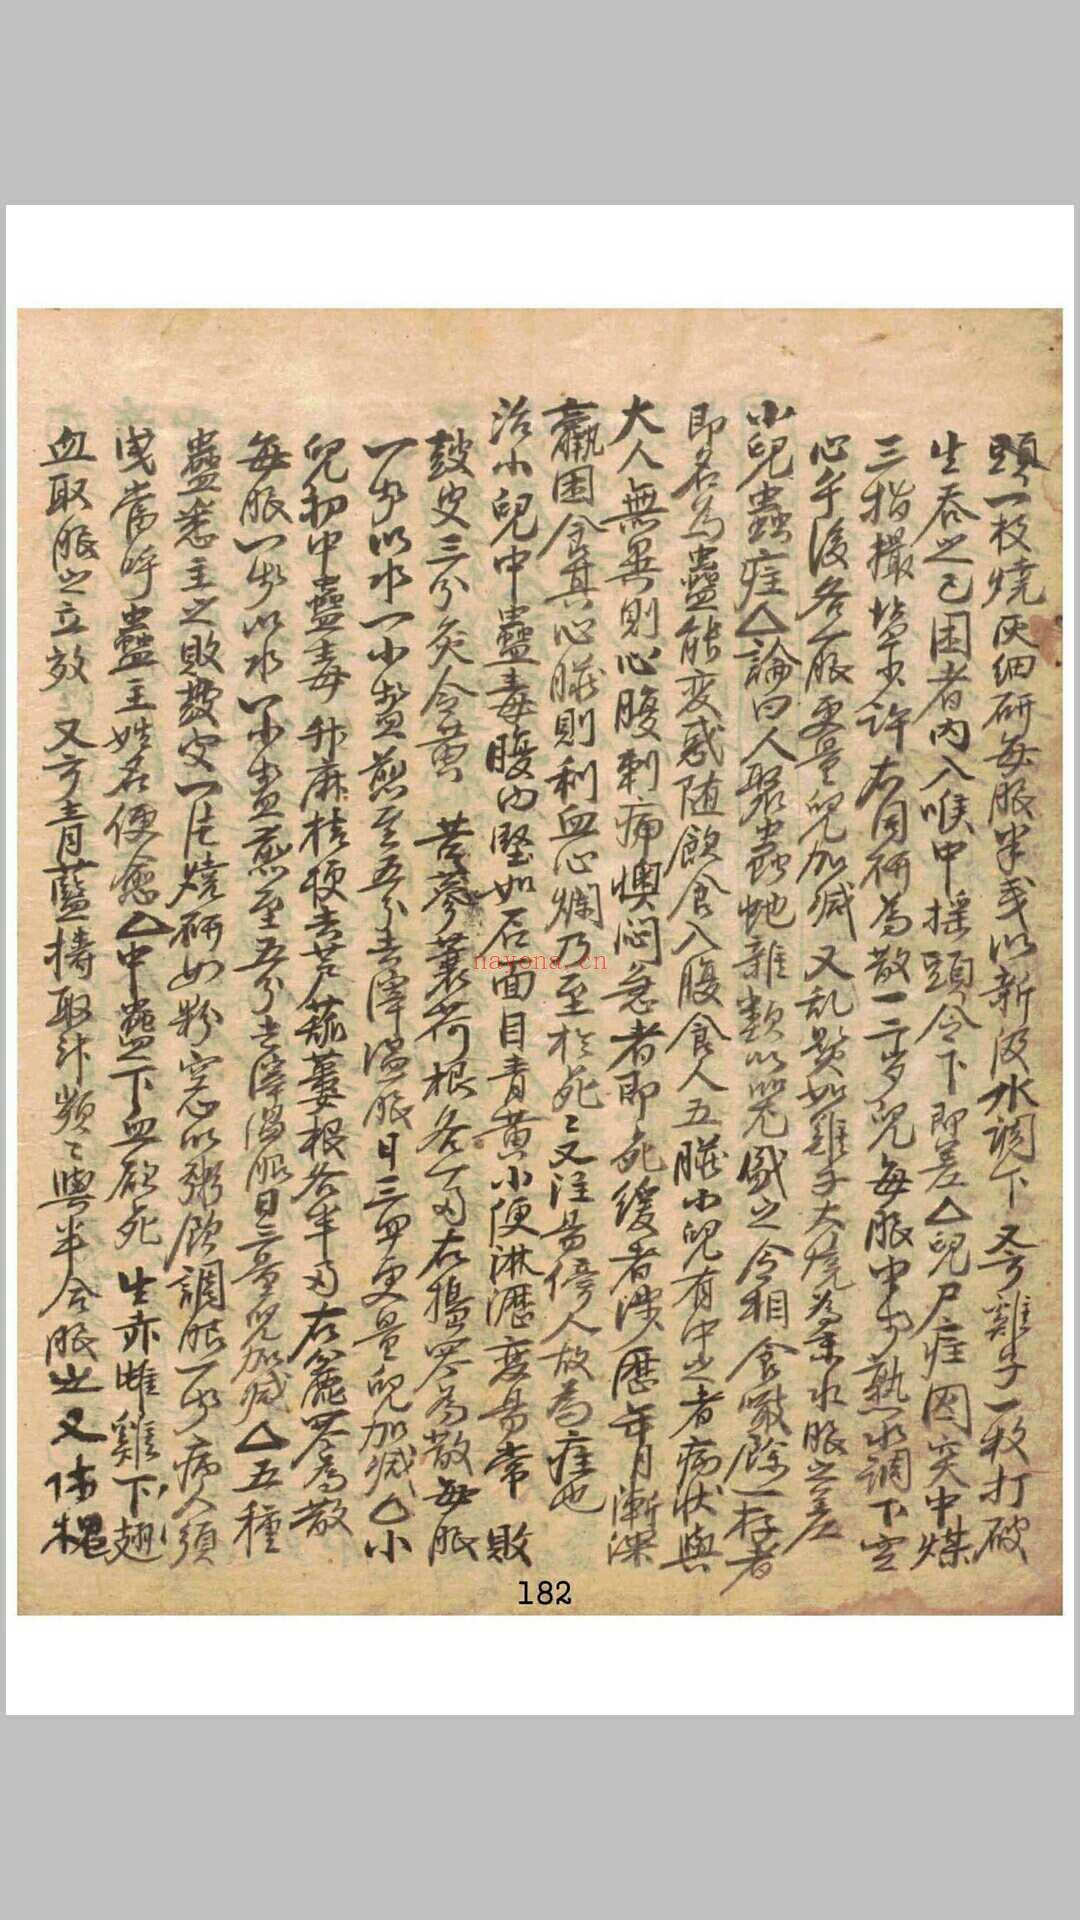 頭一枚燒灰細研每服半戔以新汲水調下 又方雞子一枚打破
生吞之已困者內入喉中搖頭令下即差△兒尸疰因突中煤
三指撮塩少許右同研為散一二岁兒每服半戔熱水調下空
心午後各一服更量兒加减 又乱髮如雞子大燒為末水服之差
小兒蠱疰△論曰人聚蟲蛇雜類以器皿盛之令相食噉餘一存者
即名為蠱能変惑随飲食入腹食人五臟小兒有中之者病状與
大人無異則心腹刺痛懊悶急者即死緩者涉歷年月漸深
羸困食其心臟則利血心爛乃至於死〻又注易傍人故為疰也
治小兒中蠱毒腹內堅如石面目青黄小便淋瀝変易常 敗
鼓皮三分炙令黄 苦蔘蘘荷根各一両右搗罗為散每服
一戔以水一小盞煎至五分去滓温服日三四更量兒加减△小
兒初中蠱毒 升麻桔梗去芦葫蔞根各半両右麁罗為散
每服一戔以水一小盞煎至五分去滓温服日三量兒加减△五種
蠱悉主之敗鼓皮一片燒研如粉空心以粥飲調服一戔病人須
臾當呼蠱主姓名便愈△中蠱下血欲死 生赤雌雞下翅
血取服之立效 又方青藍搗取汁頻〻與半合服之又